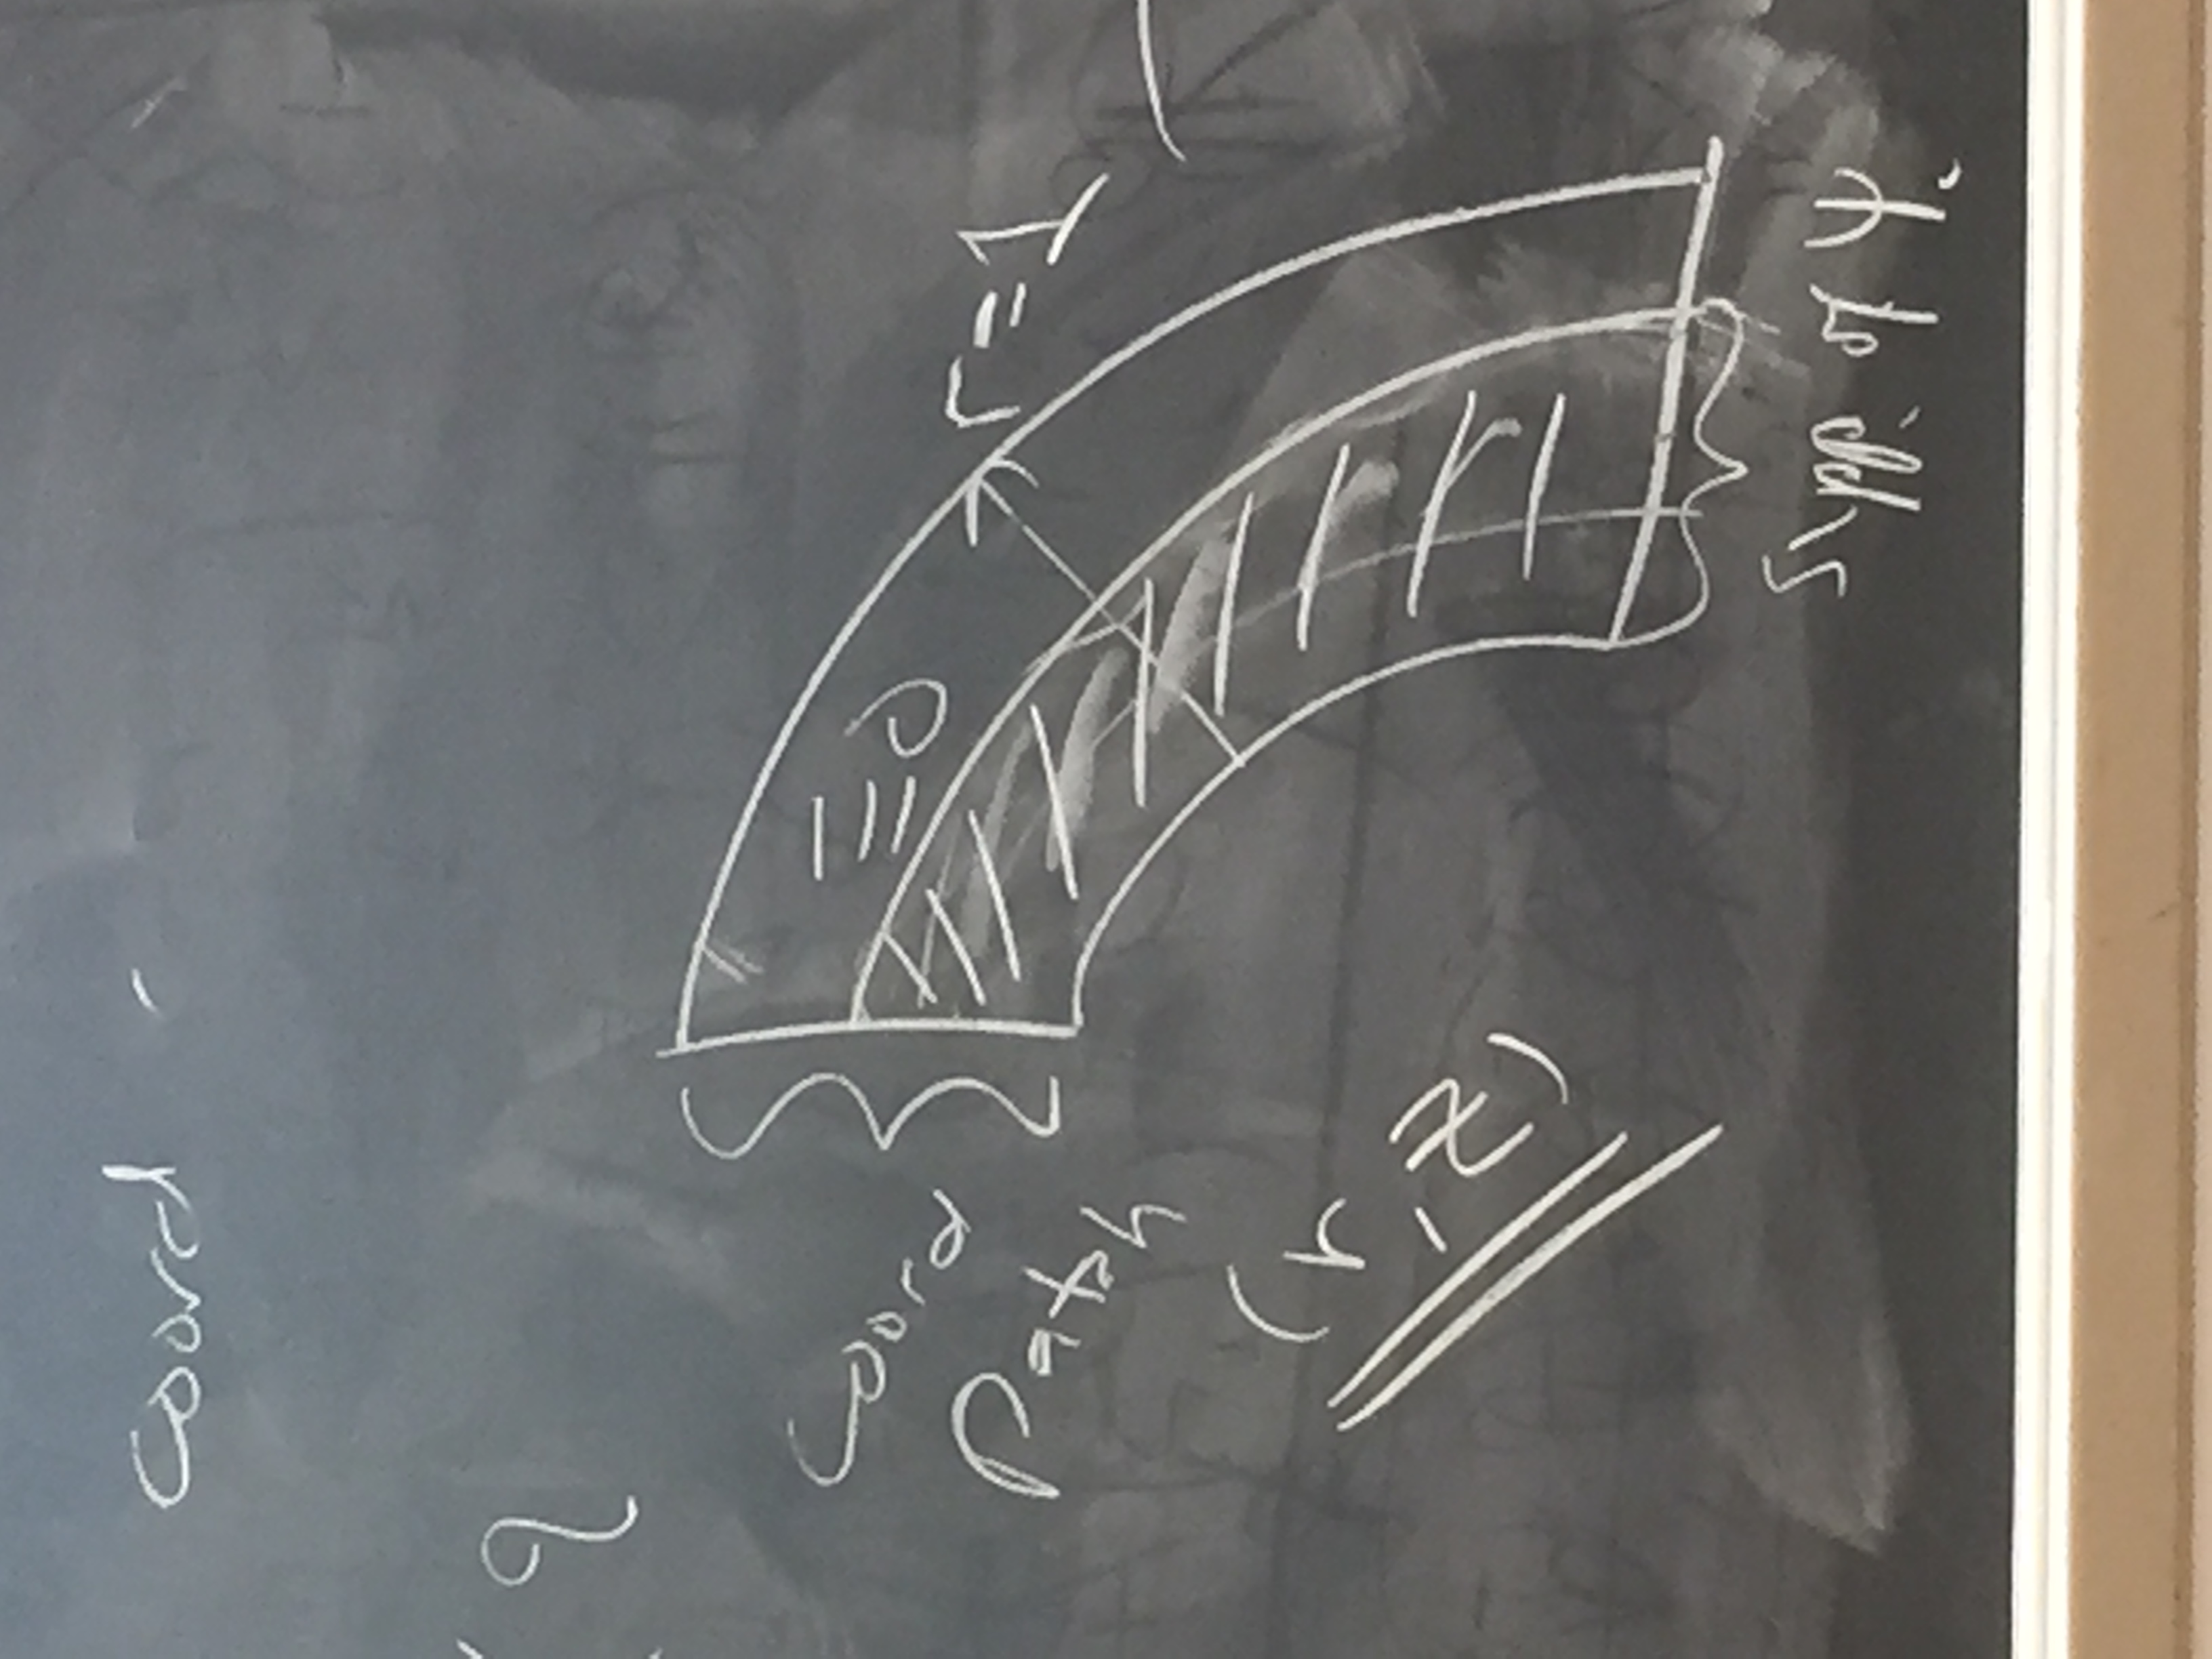 coord
q
≡0
Coord
Patch
r=1
(r, z)
supp. of ψ.